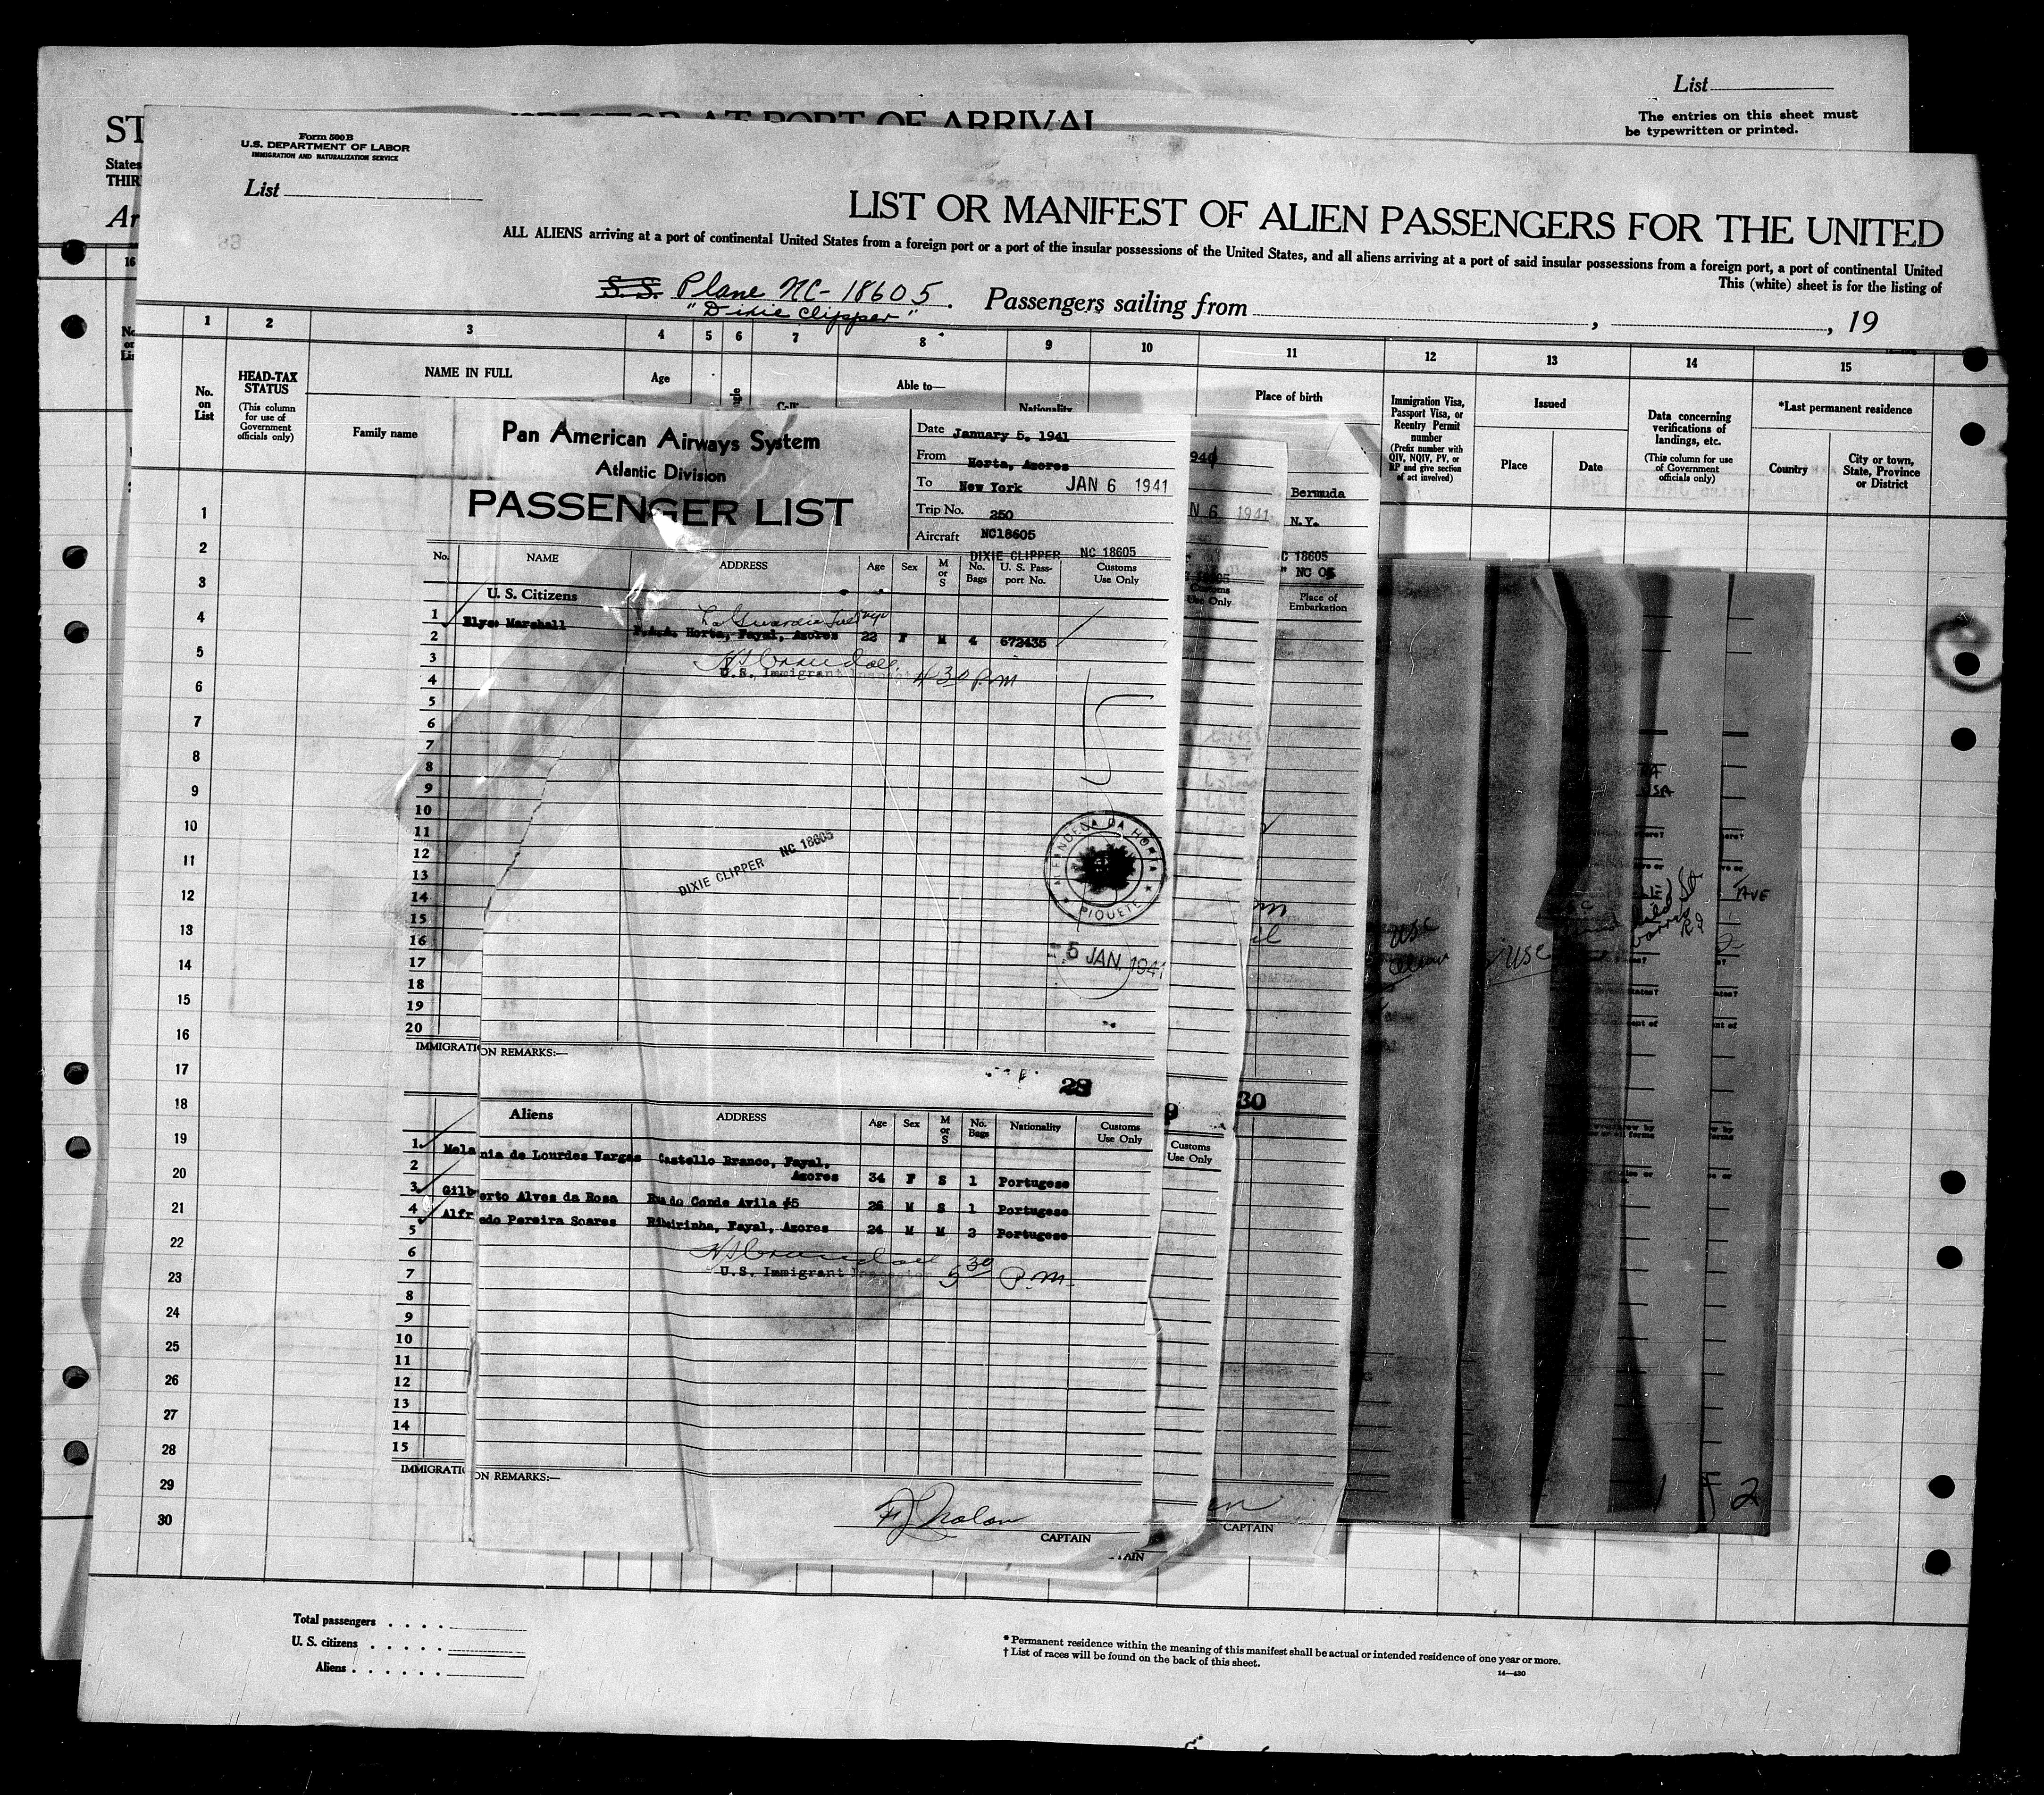 List
The entries on this sheet must
be typewritten or printed.
ST
PORT OF ARRIVAL
States
THIR
Ar
16
Form 500 B
U.S. DEPARTMENT OF LABOR
IMMIGRATION AND NATURALIZATION SERVICE
List
LIST OR MANIFEST OF ALIEN PASSENGERS FOR THE UNITED
ALL ALIENS arriving at a port of continental United States from a foreign port or a port of the insular possessions of the United States, and all aliens arriving at a port of said insular possessions from a foreign port, a port of continental United
This (white) sheet is for the listing of
S. S. Plane NC-18605. Passengers sailing from , , 19
"Dixie Clipper"
1 2 3 4 5 6 7 8 9 10 11 12 13 14 15
No. on List
HEAD-TAX STATUS
(This column for use of Government officials only)
NAME IN FULL
Family name
Age
Able to—
Nationality
Place of birth
Immigration Visa, Passport Visa, or Reentry Permit number
(Prefix number with QIV, NQIV, PV, or RP and give section of act involved)
Issued
Place Date
Data concerning verifications of landings, etc.
(This column for use of Government officials only)
*Last permanent residence
Country
City or town, State, Province or District
1
2
3
4
5
6
7
8
9
10
11
12
13
14
15
16
17
18
19
20
21
22
23
24
25
26
27
28
29
30
Pan American Airways System
Atlantic Division
PASSENGER LIST
Date January 5, 1941
From Horta, Azores
To New York JAN 6 1941
Trip No. 250
Aircraft NC18605
DIXIE CLIPPER NC 18605
No. NAME ADDRESS Age Sex M or S No. Bags U. S. Passport No. Customs Use Only
U. S. Citizens
1 Elyse Marshall
2 P.A.A. Horta, Fayal, Azores 22 F M 4 672435
3
4 U.S. Immigrant Inspector 4 30 P.M
5
6
7
8
9
10
11
12
13
14
15
16
17
18
19
20
DIXIE CLIPPER NC 18605
ALFANDEGA DA HORTA
PIQUETE
5 JAN. 1941
IMMIGRATION REMARKS:—
23
Aliens ADDRESS Age Sex M or S No. Bags Nationality Customs Use Only
1 Melania de Lourdes Vargas Castello Branco, Fayal,
2 Azores 34 F S 1 Portugese
3 Gilberto Alves da Rosa Rua do Conde Avila #5 26 M S 1 Portugese
4 Alfredo Pereira Soares Ribeirinha, Fayal, Azores 24 M M 2 Portugese
5
6
7 U.S. Immigrant Inspector 5 30 P.M.
8
9
10
11
12
13
14
15
IMMIGRATION REMARKS:—
CAPTAIN
N 6 1941
Customs
Use Only
Customs
Use Only
Bermuda
N.Y.
C 18605
" NC 05
Place of
Embarkation
30
CAPTAIN
USC
USC
USA
AVE
Total passengers
U. S. citizens
Aliens
* Permanent residence within the meaning of this manifest shall be actual or intended residence of one year or more.
† List of races will be found on the back of this sheet.
14—430